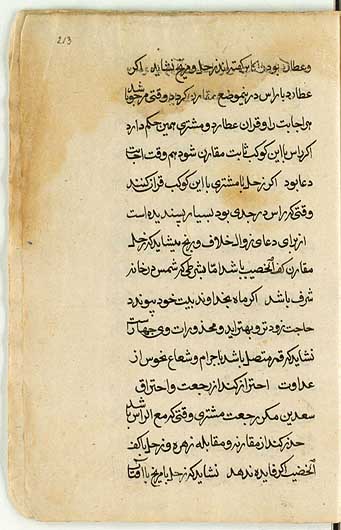 213
و عطارد بودن بهتر اند زحل و مریخ نشاید اکر
عطارد با راس درین موضع مقارن کردد وقتی مرجو باشد
مر اجابت را و قران عطارد و مشتری همین حکم دارد
اکر راس با این کوکب ثابت مقارن شود هم وقت اجابت
دعا بود اکر زحل با مشتری با این کوکب قران کنند
وقتی که راس در جدی بود بسیار پسندیده است
از برای دعای زوال خلاف و رنج میشاید که زحل
مقارن کف الخضیب باشد اما بشرطی که شمس در خانه
شرف باشد اکر ماه بخداوند بیت خود پیوندد
حاجت زودتر و بهتر اید و محذورات وی جهات
نشاید که قمر متصل باشد باجرام و شعاع نحوس از
عداوت احتراز کند از رجعت و احتراق
سعدین مکر رجعت مشتری وقتی که مع الراس باشد
حذر کند از مقارنه و مقابله زهره و زحل با کف
الخضیب اکر فایده ندهد نشاید که زحل یا مریخ با افتاب